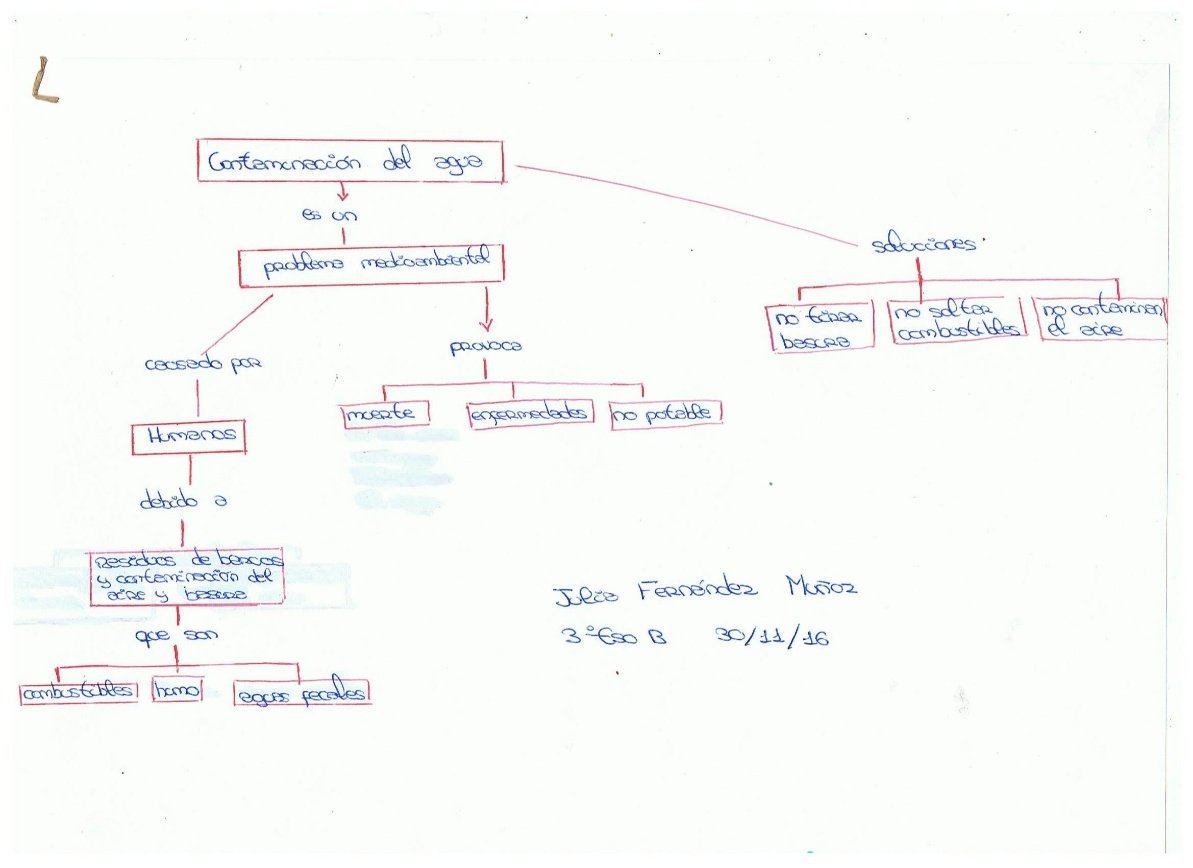 Contaminación del agua
es un
problema medioambiental
causado por
Humanos
debido a
residuos de barcos
y contaminación del
aire y basura
que son
combustibles
humo
aguas fecales
provoca
muerte
enfermedades
no potable
soluciones
no tirar
basura
no soltar
combustibles
no contaminar
el aire
Julia Fernández Muñoz
3º ESO B 30/11/16